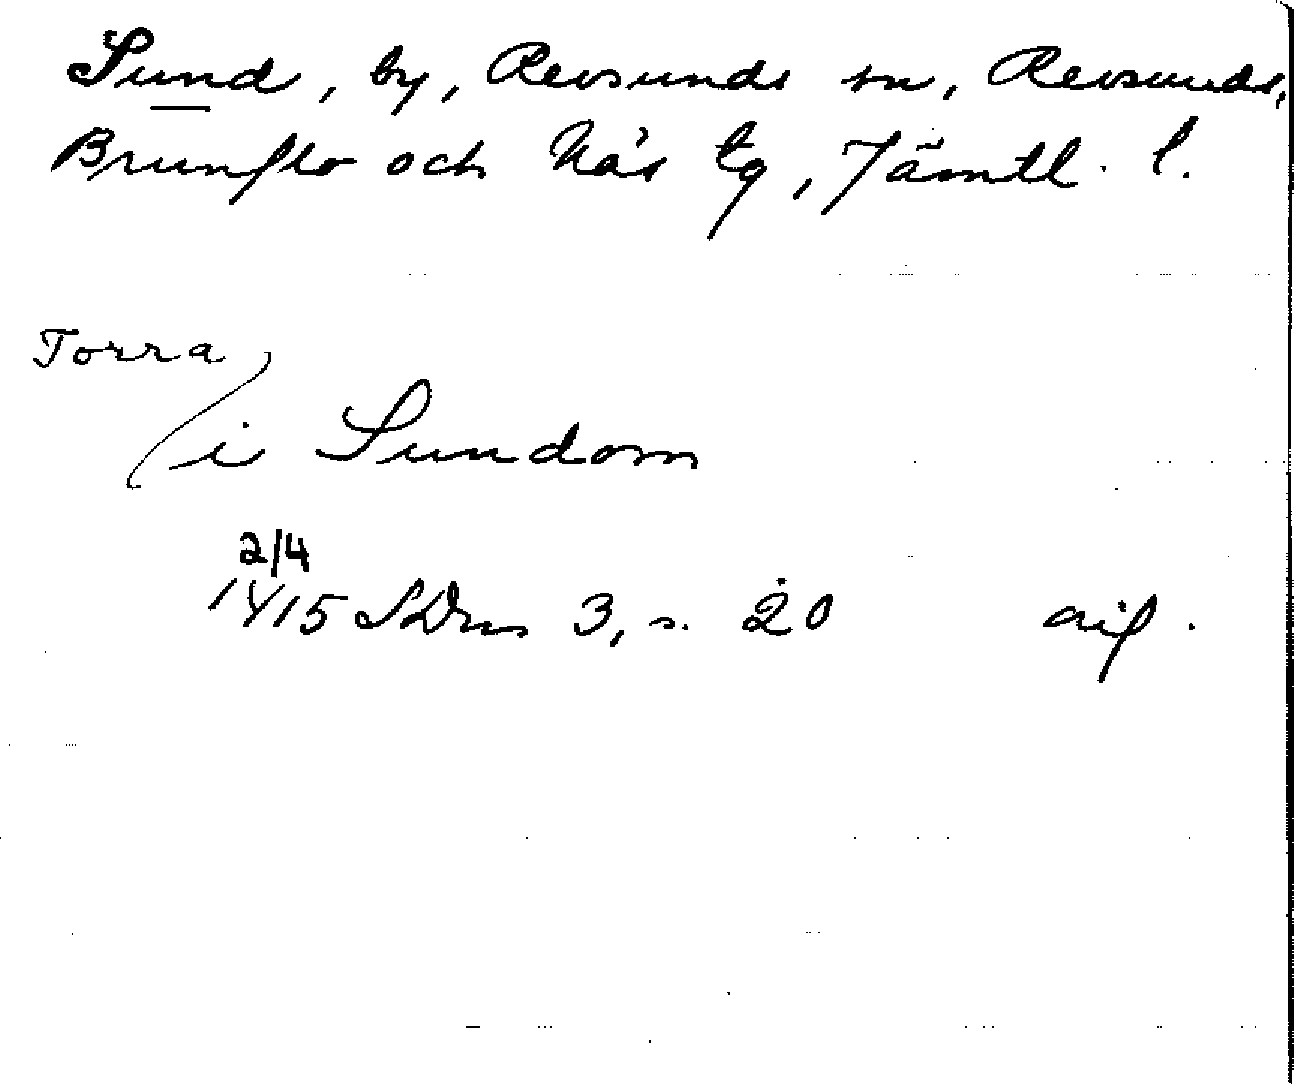 Sund, by, Revsunds sn, Revsunds,
Brunflo och Näs tg, Jämtl. l.
Torra
i Sundom
2/4
1415 SDns 3, s. 20 avs.